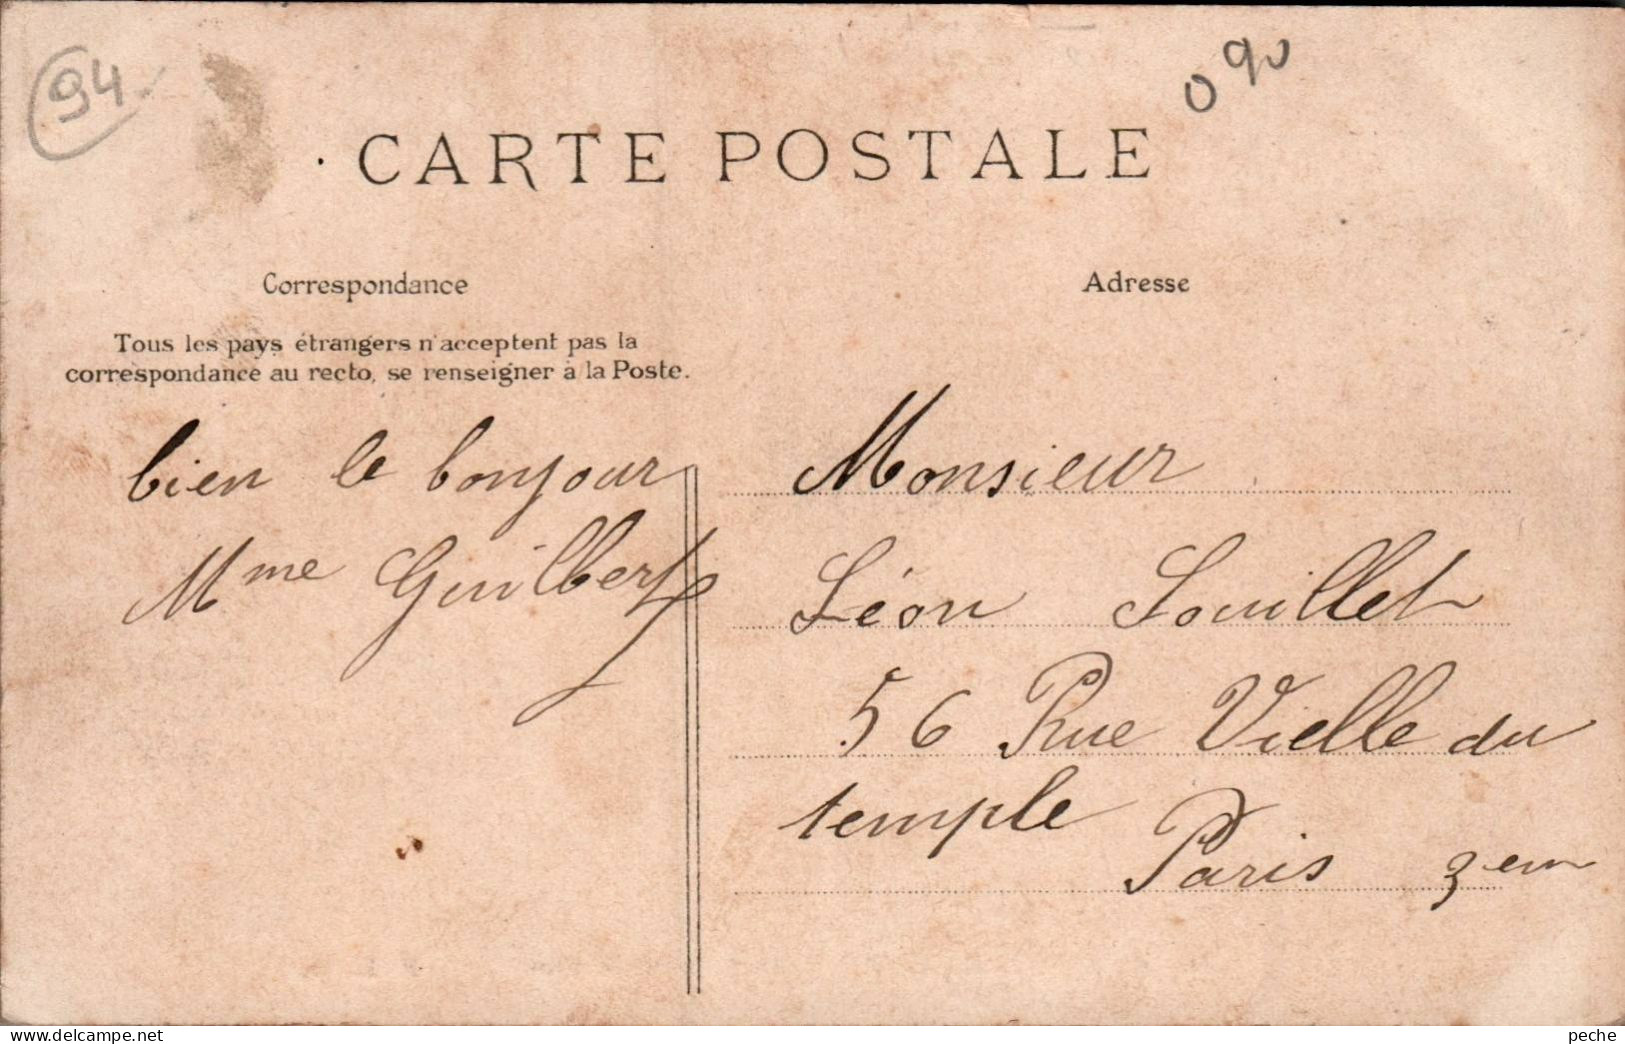 94.
0 90
CARTE POSTALE
Correspondance
Adresse
Tous les pays étrangers n'acceptent pas la
correspondance au recto, se renseigner à la Poste.
bien le bonjour
Mme Guilbert
Monsieur
Léon Souillet
56 Rue Vielle du
temple
Paris 3em
peche